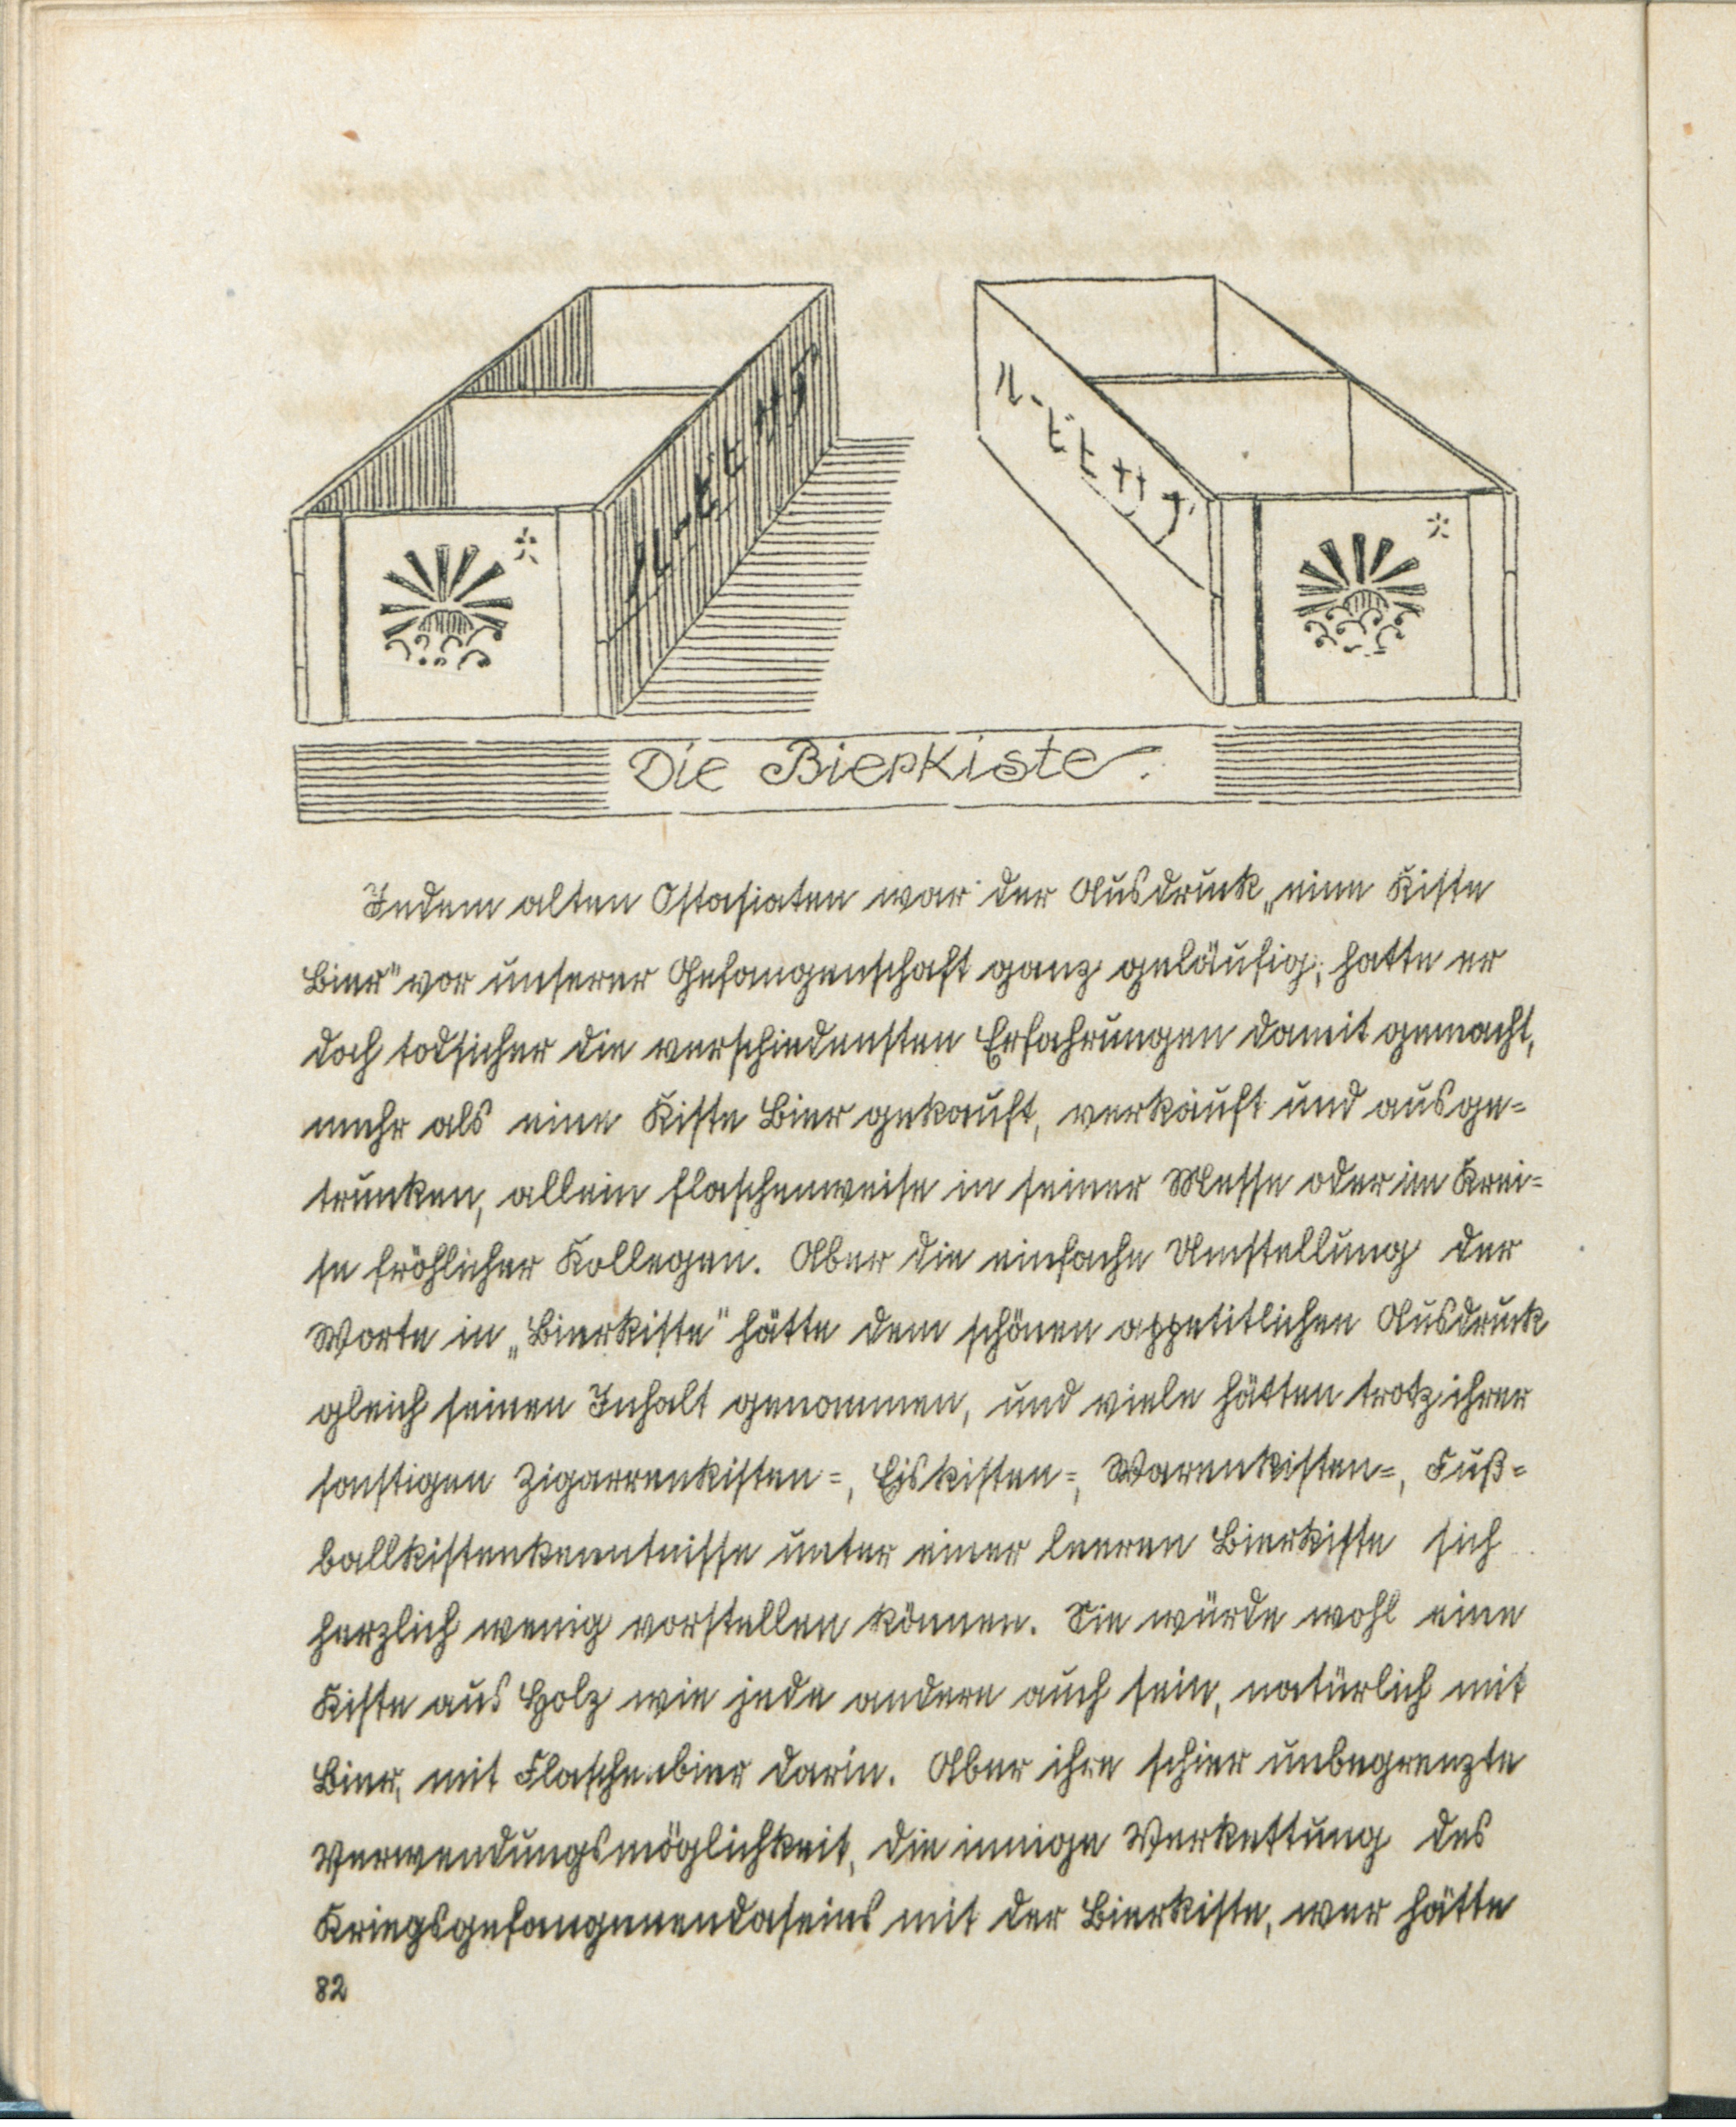 ルービヒサア
ルービヒサア
Die Bierkiste.
Jedem alten Ostasiaten war der Ausdruck „eine Kiste
Bier" vor unserer Gefangenschaft ganz geläufig; hatte er
doch todsicher die verschiedensten Erfahrungen damit gemacht,
mehr als eine Kiste Bier gekauft, verkauft und ausge=
trunken, allein flaschenweise in seiner Messe oder im Krei=
se fröhlicher Kollegen. Aber die einfache Umstellung der
Worte in „Bierkiste" hätte dem schönen appetitlichen Ausdruck
gleich seinen Inhalt genommen, und viele hätten trotz ihrer
sonstigen Zigarrenkisten=, Eiskisten=, Warenkisten=, Fuß=
ballkistenkenntnisse unter einer leeren Bierkiste sich
herzlich wenig vorstellen können. Sie würde wohl eine
Kiste aus Holz wie jede andere auch sein, natürlich mit
Bier, mit Flaschenbier darin. Aber ihre schier unbegrenzte
Verwendungsmöglichkeit, die innige Verkettung des
Kriegsgefangenendaseins mit der Bierkiste, wer hätte
82